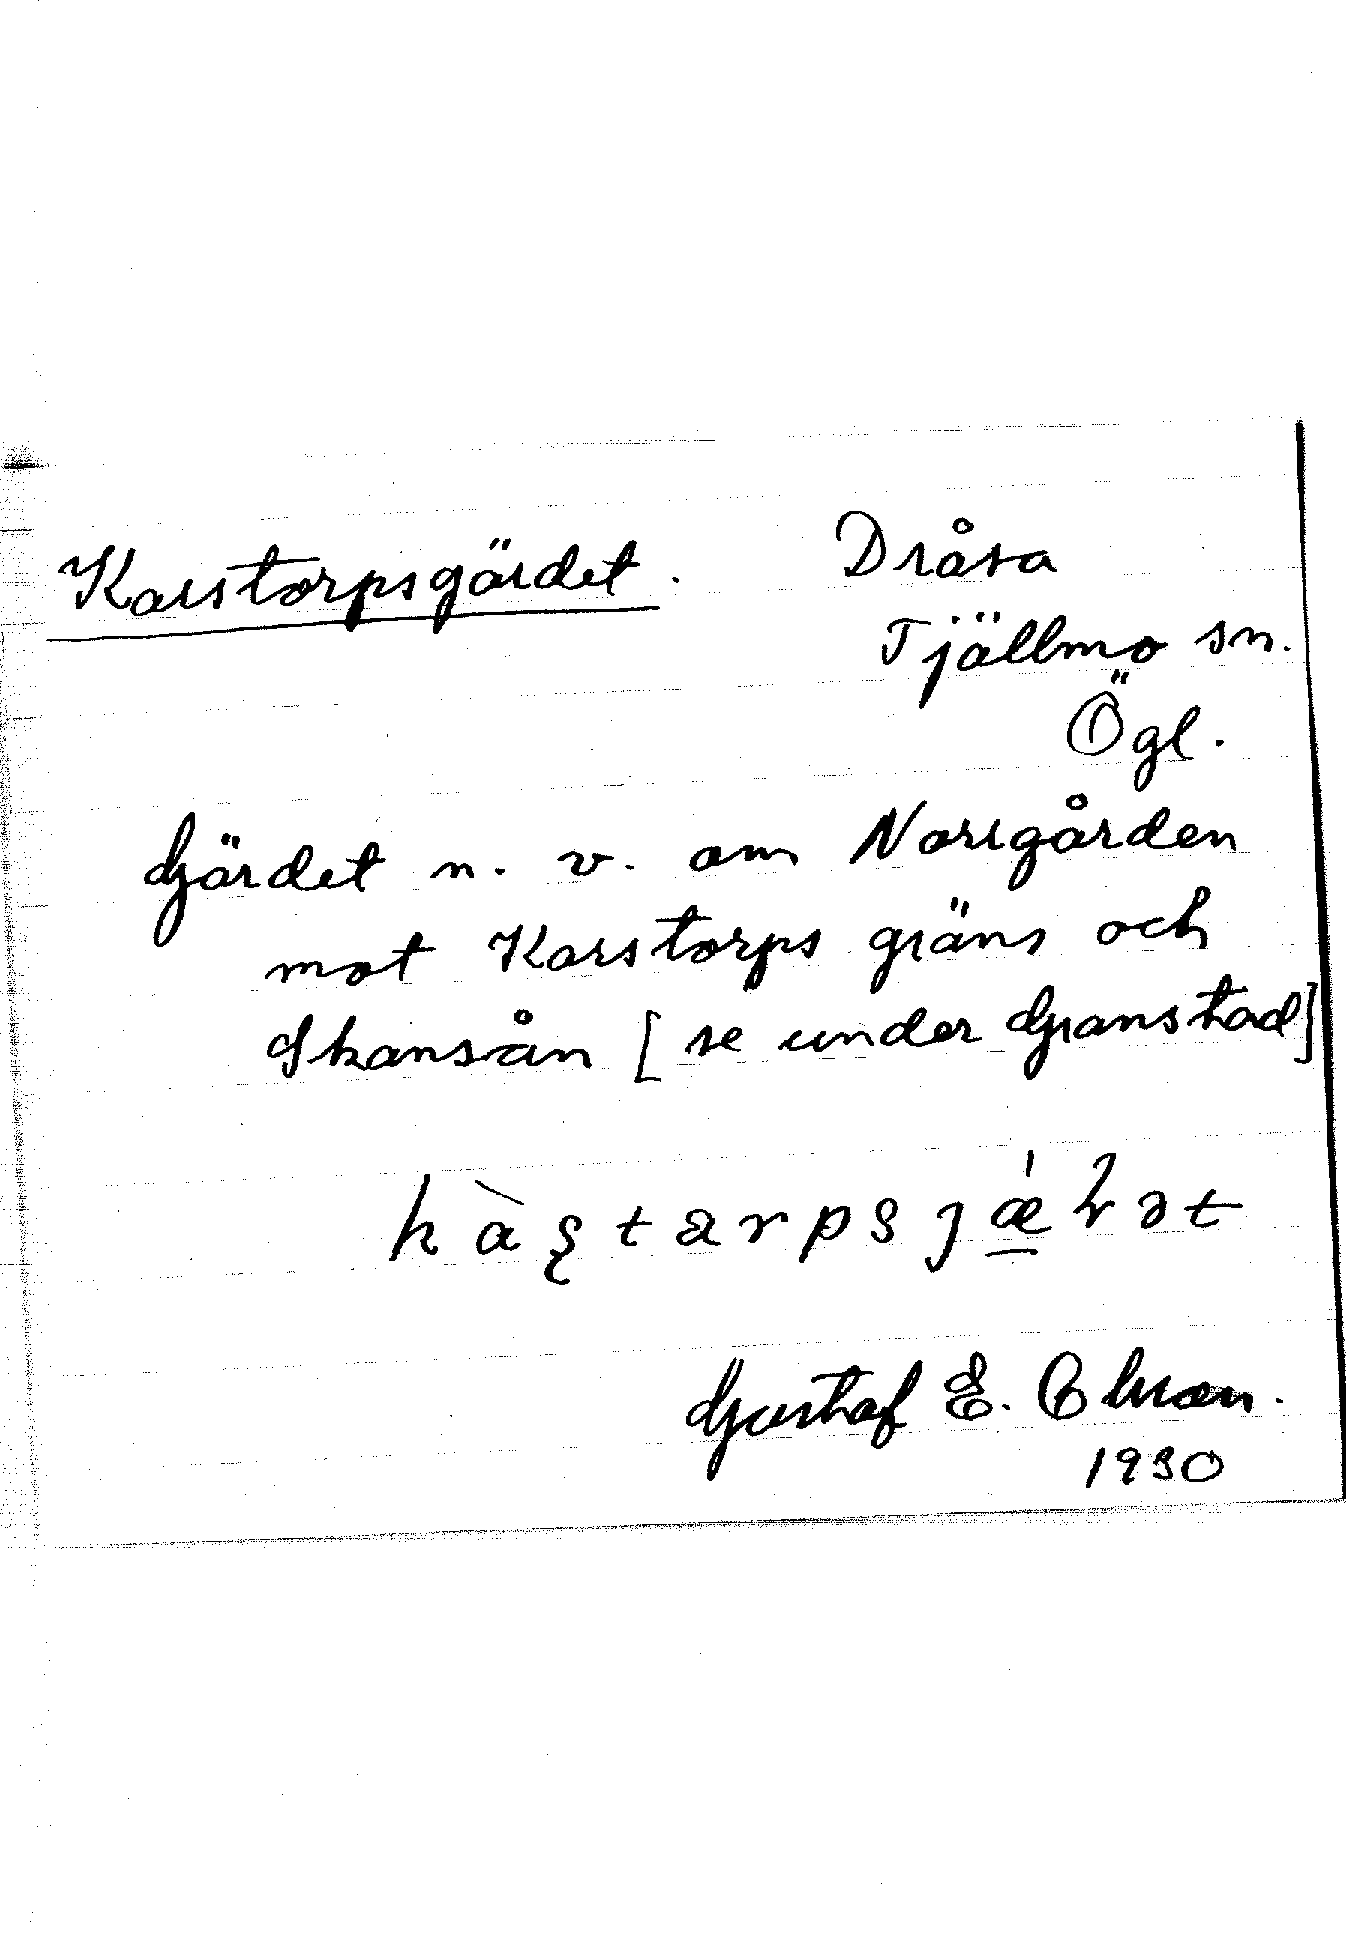 Karstorpsgärdet. Dråsa
Tjällmo sn.
Ögl.
Gärdet n. v. om Norrgården
mot Karstorps gräns och
Skansån [se under Granstad]
Gustaf E.
1930